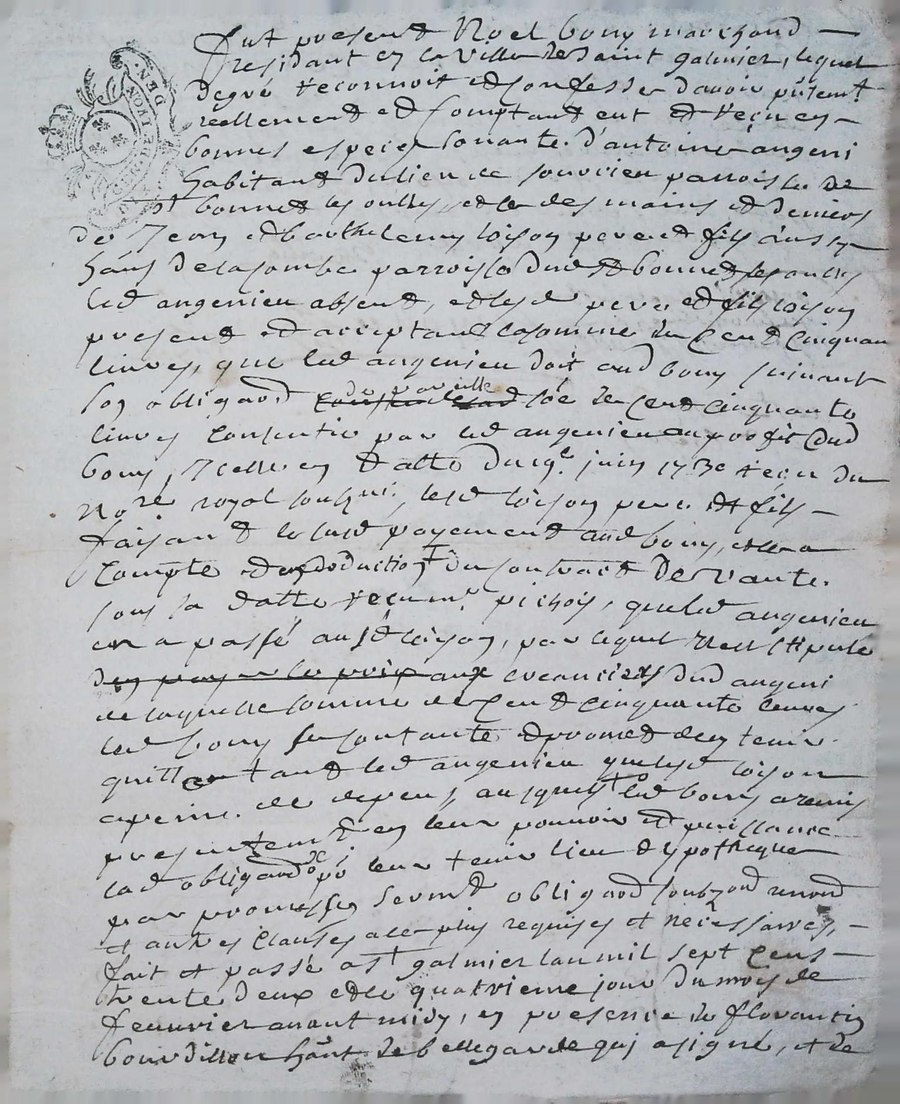 fut present Noel bouy marchand
residant en la ville de saint galmier, lequel
de gré reconnoit et confesse davoir presentt
reellement et comptant eut et reçu en
bonnes especes sonante. d'antoine angeni
habitant du lieu de souvrieu parroisse de
st bonnet les oulles, et ce des mains et deniers
de Jean et barthelemy loison pere et fils aussy
hants de la combe parroisse dud st bonnet les oulles
led angenieu absent, et lesd pere et fils loison
present et acceptant la somme de cent cinquan
livres, que led angenieu doit aud bouy suivant
son obligaon de pareille soe de cent cinquante
livres consentie par led angenieu au profit dud
bouy, Icelle en datte du juin 1730 reçu du
No.re royal soubz.né, lesd loison pere et fils
faisant le susd payement aud bouy, et ce a
compte et en deduction du contract de vante
sous sa datte reçu me pichois, que led angenieu
en a passé ausd loison, par lequel il est stipulé
den payer le prix aux creanciers dud angeni
de laquelle somme de cent cinquante livres
led bouy se contante et promet den tenir
quitte tant led angenieu que lesd loison
a peine de depens, ausquels led bouy a remis
presentemt en leur pouvoir et puissance
lad obligaon pr leur tenir lieu d'ypotheque
par promesses sermt obligaon soubzon renon
et autres clauses a ce plus requises et necessaires,
fait et passé a st galmier lan mil sept cens
trente deux et le quatrieme jour du mois de
feuvrier avant midy, en presence de florantin
bourdillon hant de bellegarde qui a signé, et de